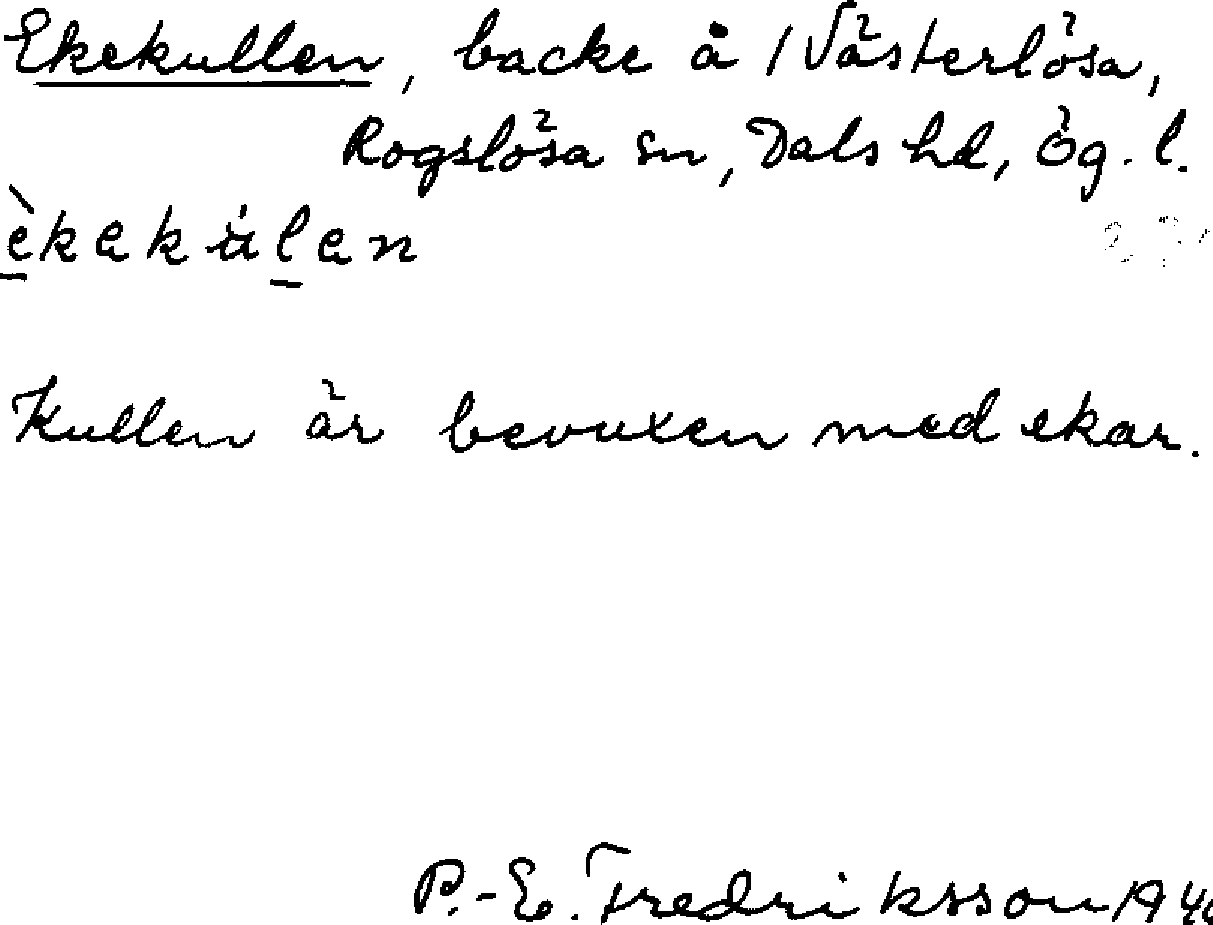 Ekekullen, backe å /Västerlösa,
Rogslösa sn, Dals hd, Ög. l.
èkekúlen
Kullen är bevuxen med ekar.
P.-E. Fredriksson